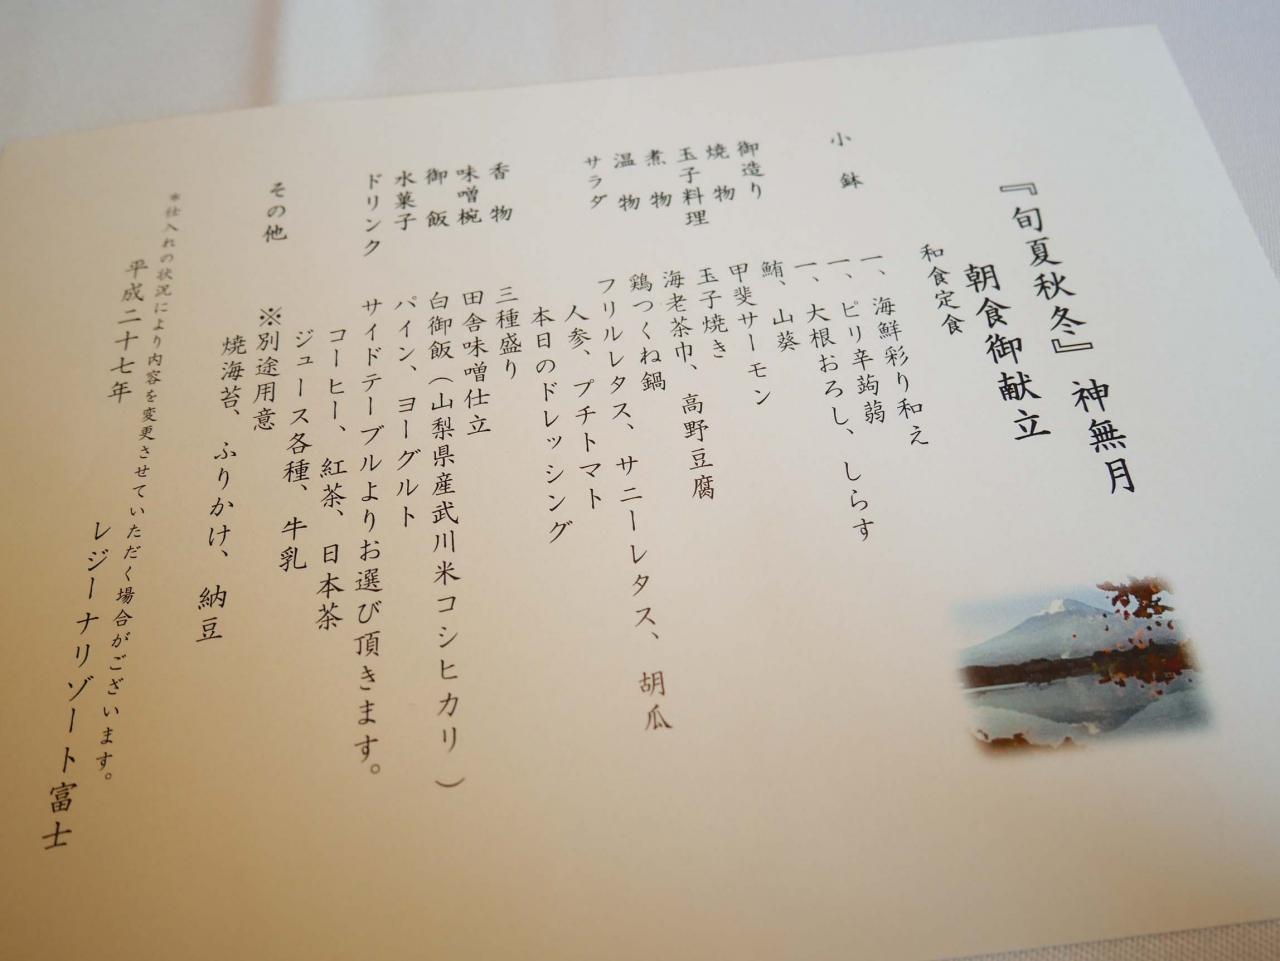 『旬夏秋冬』 神無月
朝食御献立
和食定食
小鉢 一、海鮮彩り和え
一、ピリ辛蒟蒻
一、大根おろし、しらす
御造り 鮪、山葵
焼物 甲斐サーモン
玉子料理 玉子焼き
煮物 海老茶巾、高野豆腐
温物 鶏つくね鍋
サラダ フリルレタス、サニーレタス、胡瓜
人参、プチトマト
本日のドレッシング
香物 三種盛り
味噌椀 田舎味噌仕立
御飯 白御飯(山梨県産武川米コシヒカリ)
水菓子 パイン、ヨーグルト
ドリンク サイドテーブルよりお選び頂きます。
コーヒー、紅茶、日本茶
ジュース各種、牛乳
その他 ※別途用意
焼海苔、ふりかけ、納豆
*仕入れの状況により内容を変更させていただく場合がございます。
平成二十七年 レジーナリゾート富士